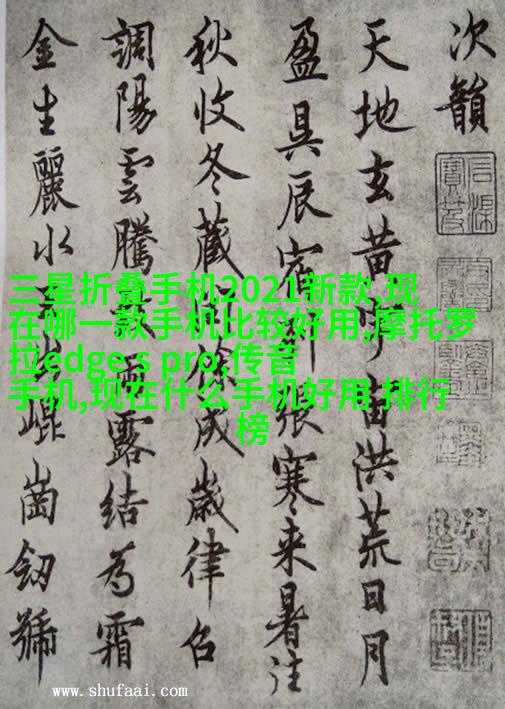 次韻
天地玄黄宙洪荒日月
盈昃辰宿張寒来暑往
秋收冬藏成歲律吕
調陽雲騰露結為霜
金生麗水崐崗劒號
三星折叠手机2021新款,现
在哪一款手机比较好用,摩托罗
拉edge s pro,传音
手机,现在什么手机好用,排行
榜
www.shufaai.com